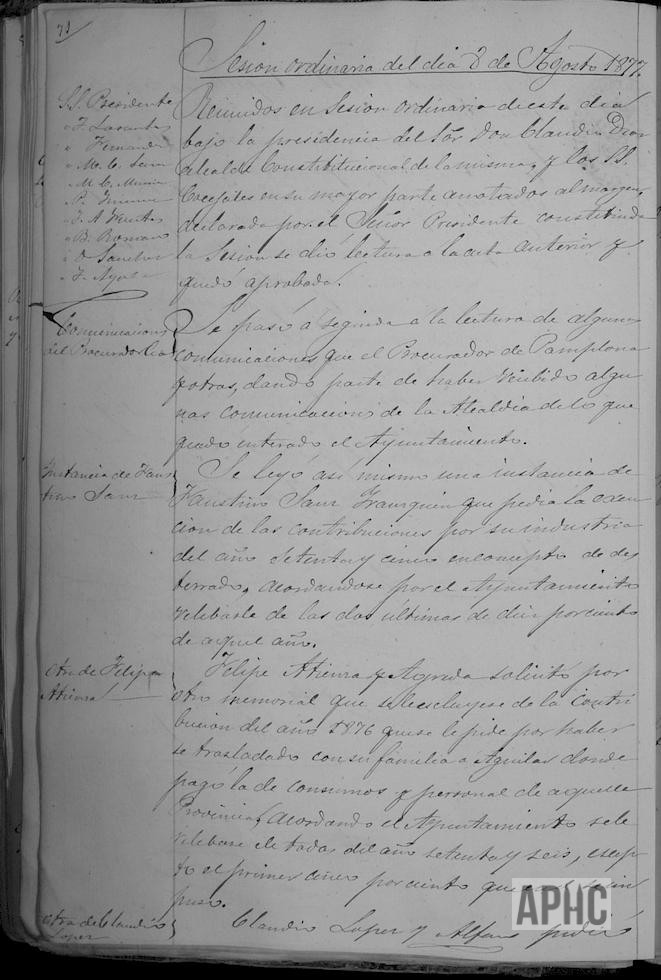 71
Sesion ordinaria del dia 8 de Agosto 1877.
SS. Presidente
Fernande
M. C.
M. C.
B. Romano
Sanchez
F. Ayala
Reunidos en Sesion ordinaria de este dia
bajo la presidencia del Sõr Don Claudio
alcalde Constitucional de la misma, y los SS.
Concejales en su mayor parte anotados al margen,
declarada por el Señor Presidente constituida
la Sesion se dió lectura a la acta anterior y
quedó aprobada.
Comunicaciones
del Procurador
Se pasó a seguida a la lectura de algunas
comunicaciones que el Procurador de Pamplona
y otras, dando parte de haber recibido algu
nas comunicaciones de la Alcaldia de lo que
quedó enterado el Ayuntamiento.
Instancia de Faus
tino Sanz
Se leyó asi mismo una instancia de
Faustino Sanz que pedia la exen
cion de las contribuciones por su industria
del año setenta y cinco en concepto de des
terrado, acordandose por el Ayuntamiento
relebarle de las dos últimas de diez por ciento
de aquel año.
otra de Felipe
Atienza
Felipe Atienza y Agreda solicitó por
otro memorial que se le escluyese de la contri
bucion del año 1876 que se le pide por haber
se trasladado con su familia a Aguilar donde
pagó la de consumos y personal de aquella
Provincia, acordando el Ayuntamiento se le
relebase de todas del año setenta y seis, escep
to el primer cinco por ciento que se im
puso.
otra de Claudio
Lopez
Claudio Lopez y Alfaro pidió
APHC